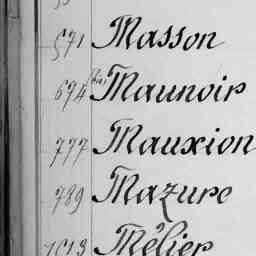 571 Masson
694 (bis) Maunoir
777 Mauxion
789 Mazure
1013 Mélier